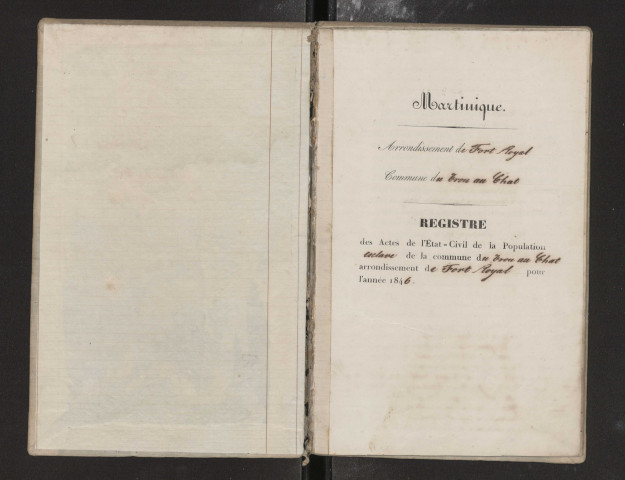 Martinique.
Arrondissement de Fort Royal
Commune du Trou au Chat
REGISTRE
des Actes de l'État-Civil de la Population
esclave de la commune du Trou au Chat
arrondissement de Fort Royal pour
l'année 1846.